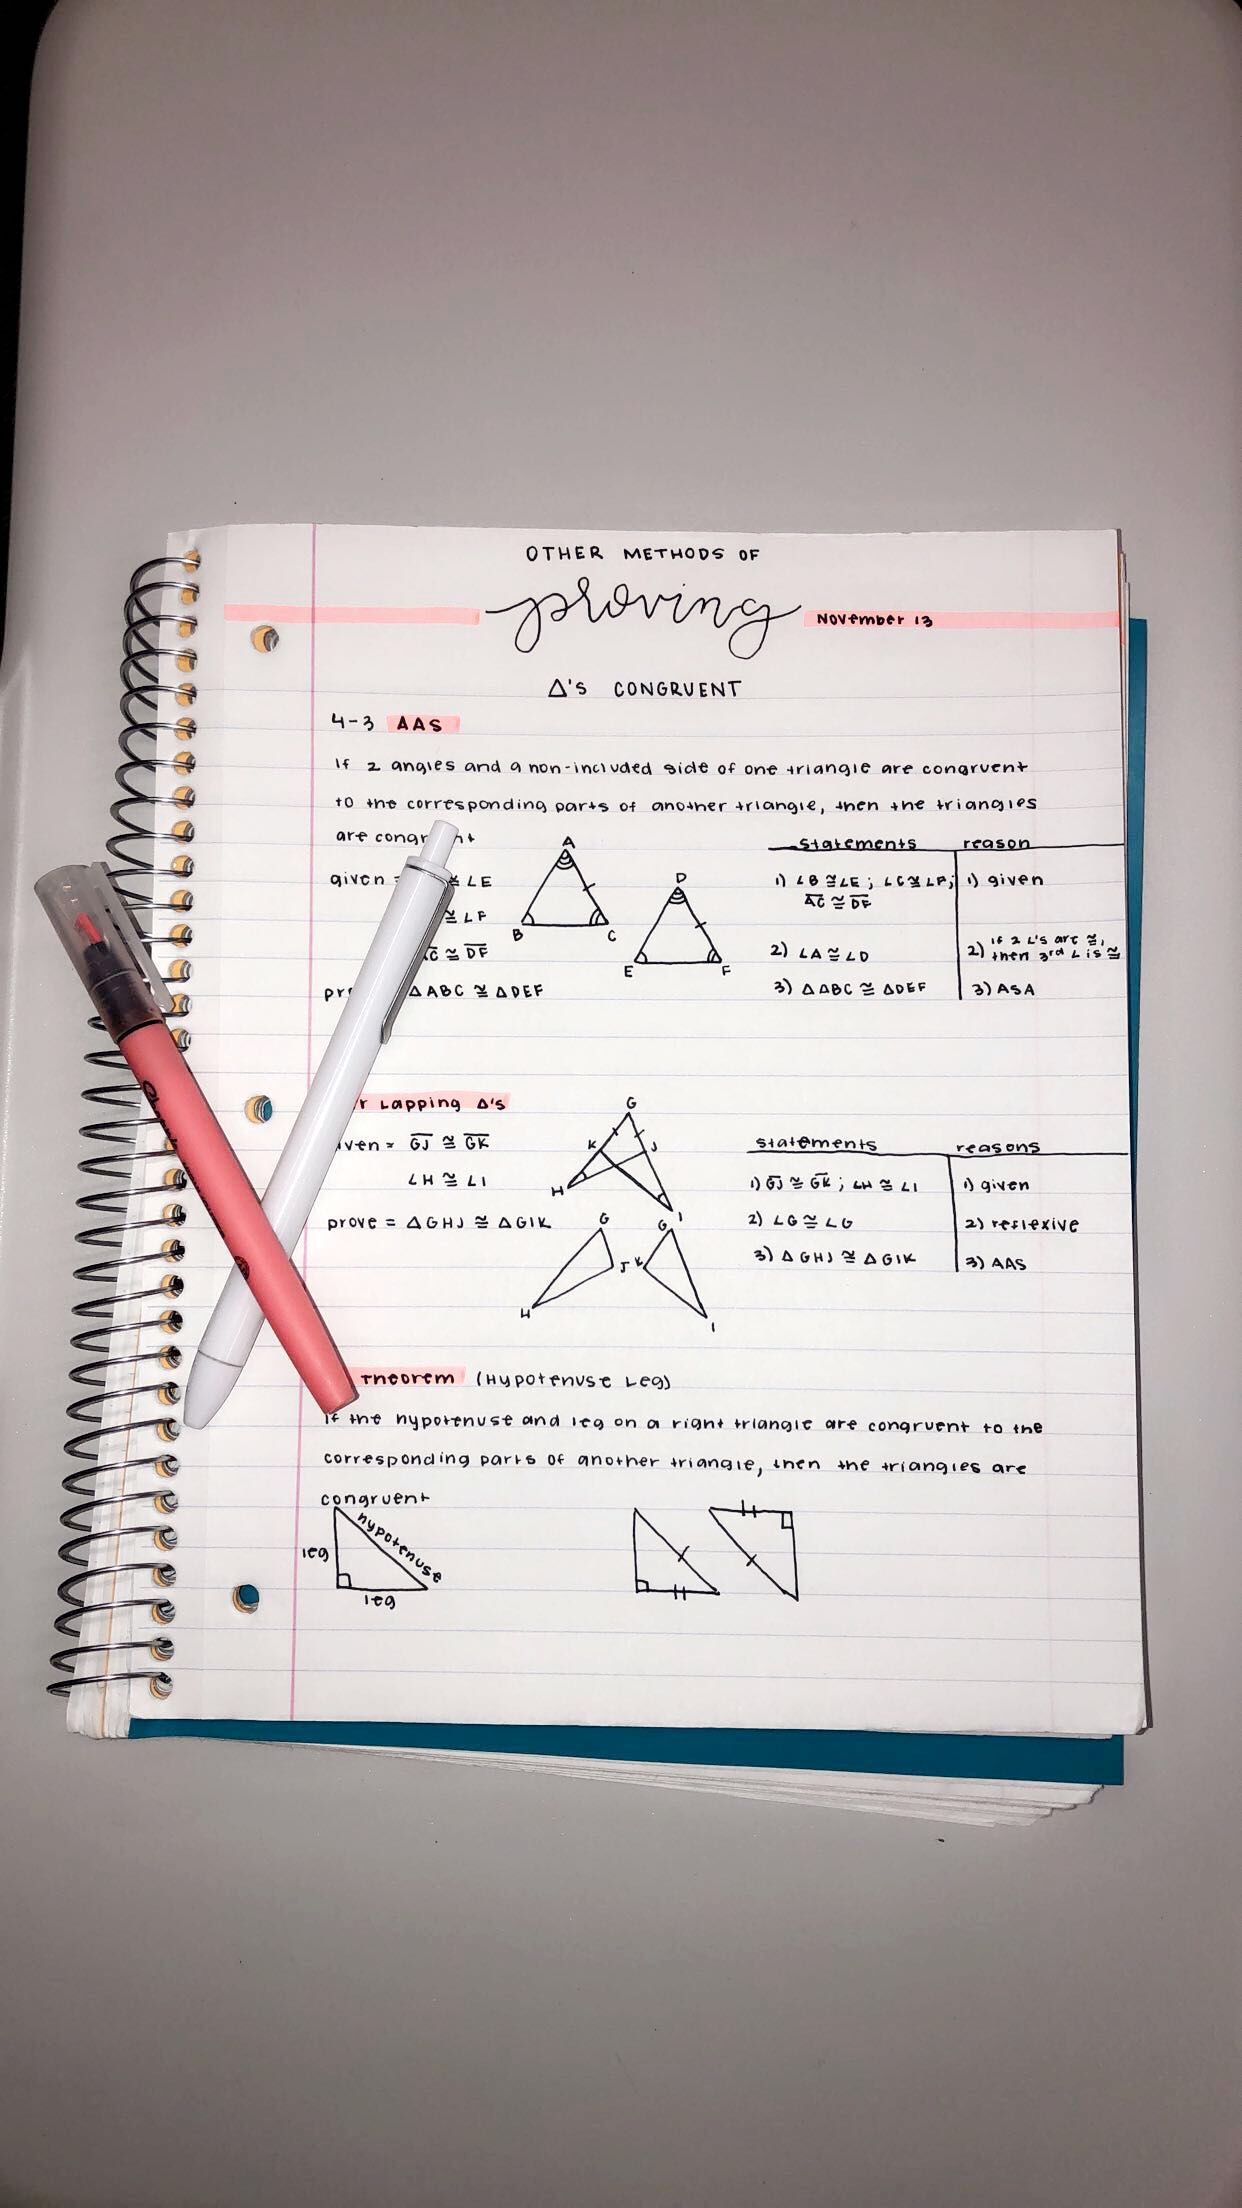 OTHER METHODS OF
proving
November 13
Δ's CONGRUENT
4-3 AAS
If 2 angles and a non-included side of one triangle are congruent
to the corresponding parts of another triangle, then the triangles
are
given = ≅ ∠E
≅ ∠F
≅ D̅F̅
Δ ABC ≅ Δ DEF
A
B
C
D
E
F
statements reason
1) ∠B ≅ ∠E ; ∠C ≅ ∠F; 1) given
A̅C̅ ≅ D̅F̅
2) ∠A ≅ ∠D 2) if 2 ∠'s are ≅,
then 3rd ∠ is ≅
3) Δ ABC ≅ Δ DEF 3) ASA
Lapping Δ's
G̅J̅ ≅ G̅K̅
∠H ≅ ∠I
prove = Δ GHJ ≅ Δ GIK
G
K
J
H
I
G
J
H
G
K
I
statements reasons
1) G̅J̅ ≅ G̅K̅ ; ∠H ≅ ∠I 1) given
2) ∠G ≅ ∠G 2) reflexive
3) Δ GHJ ≅ Δ GIK 3) AAS
Theorem (Hypotenuse Leg)
If the hypotenuse and leg on a right triangle are congruent to the
corresponding parts of another triangle, then the triangles are
congruent
hypotenuse
leg
leg